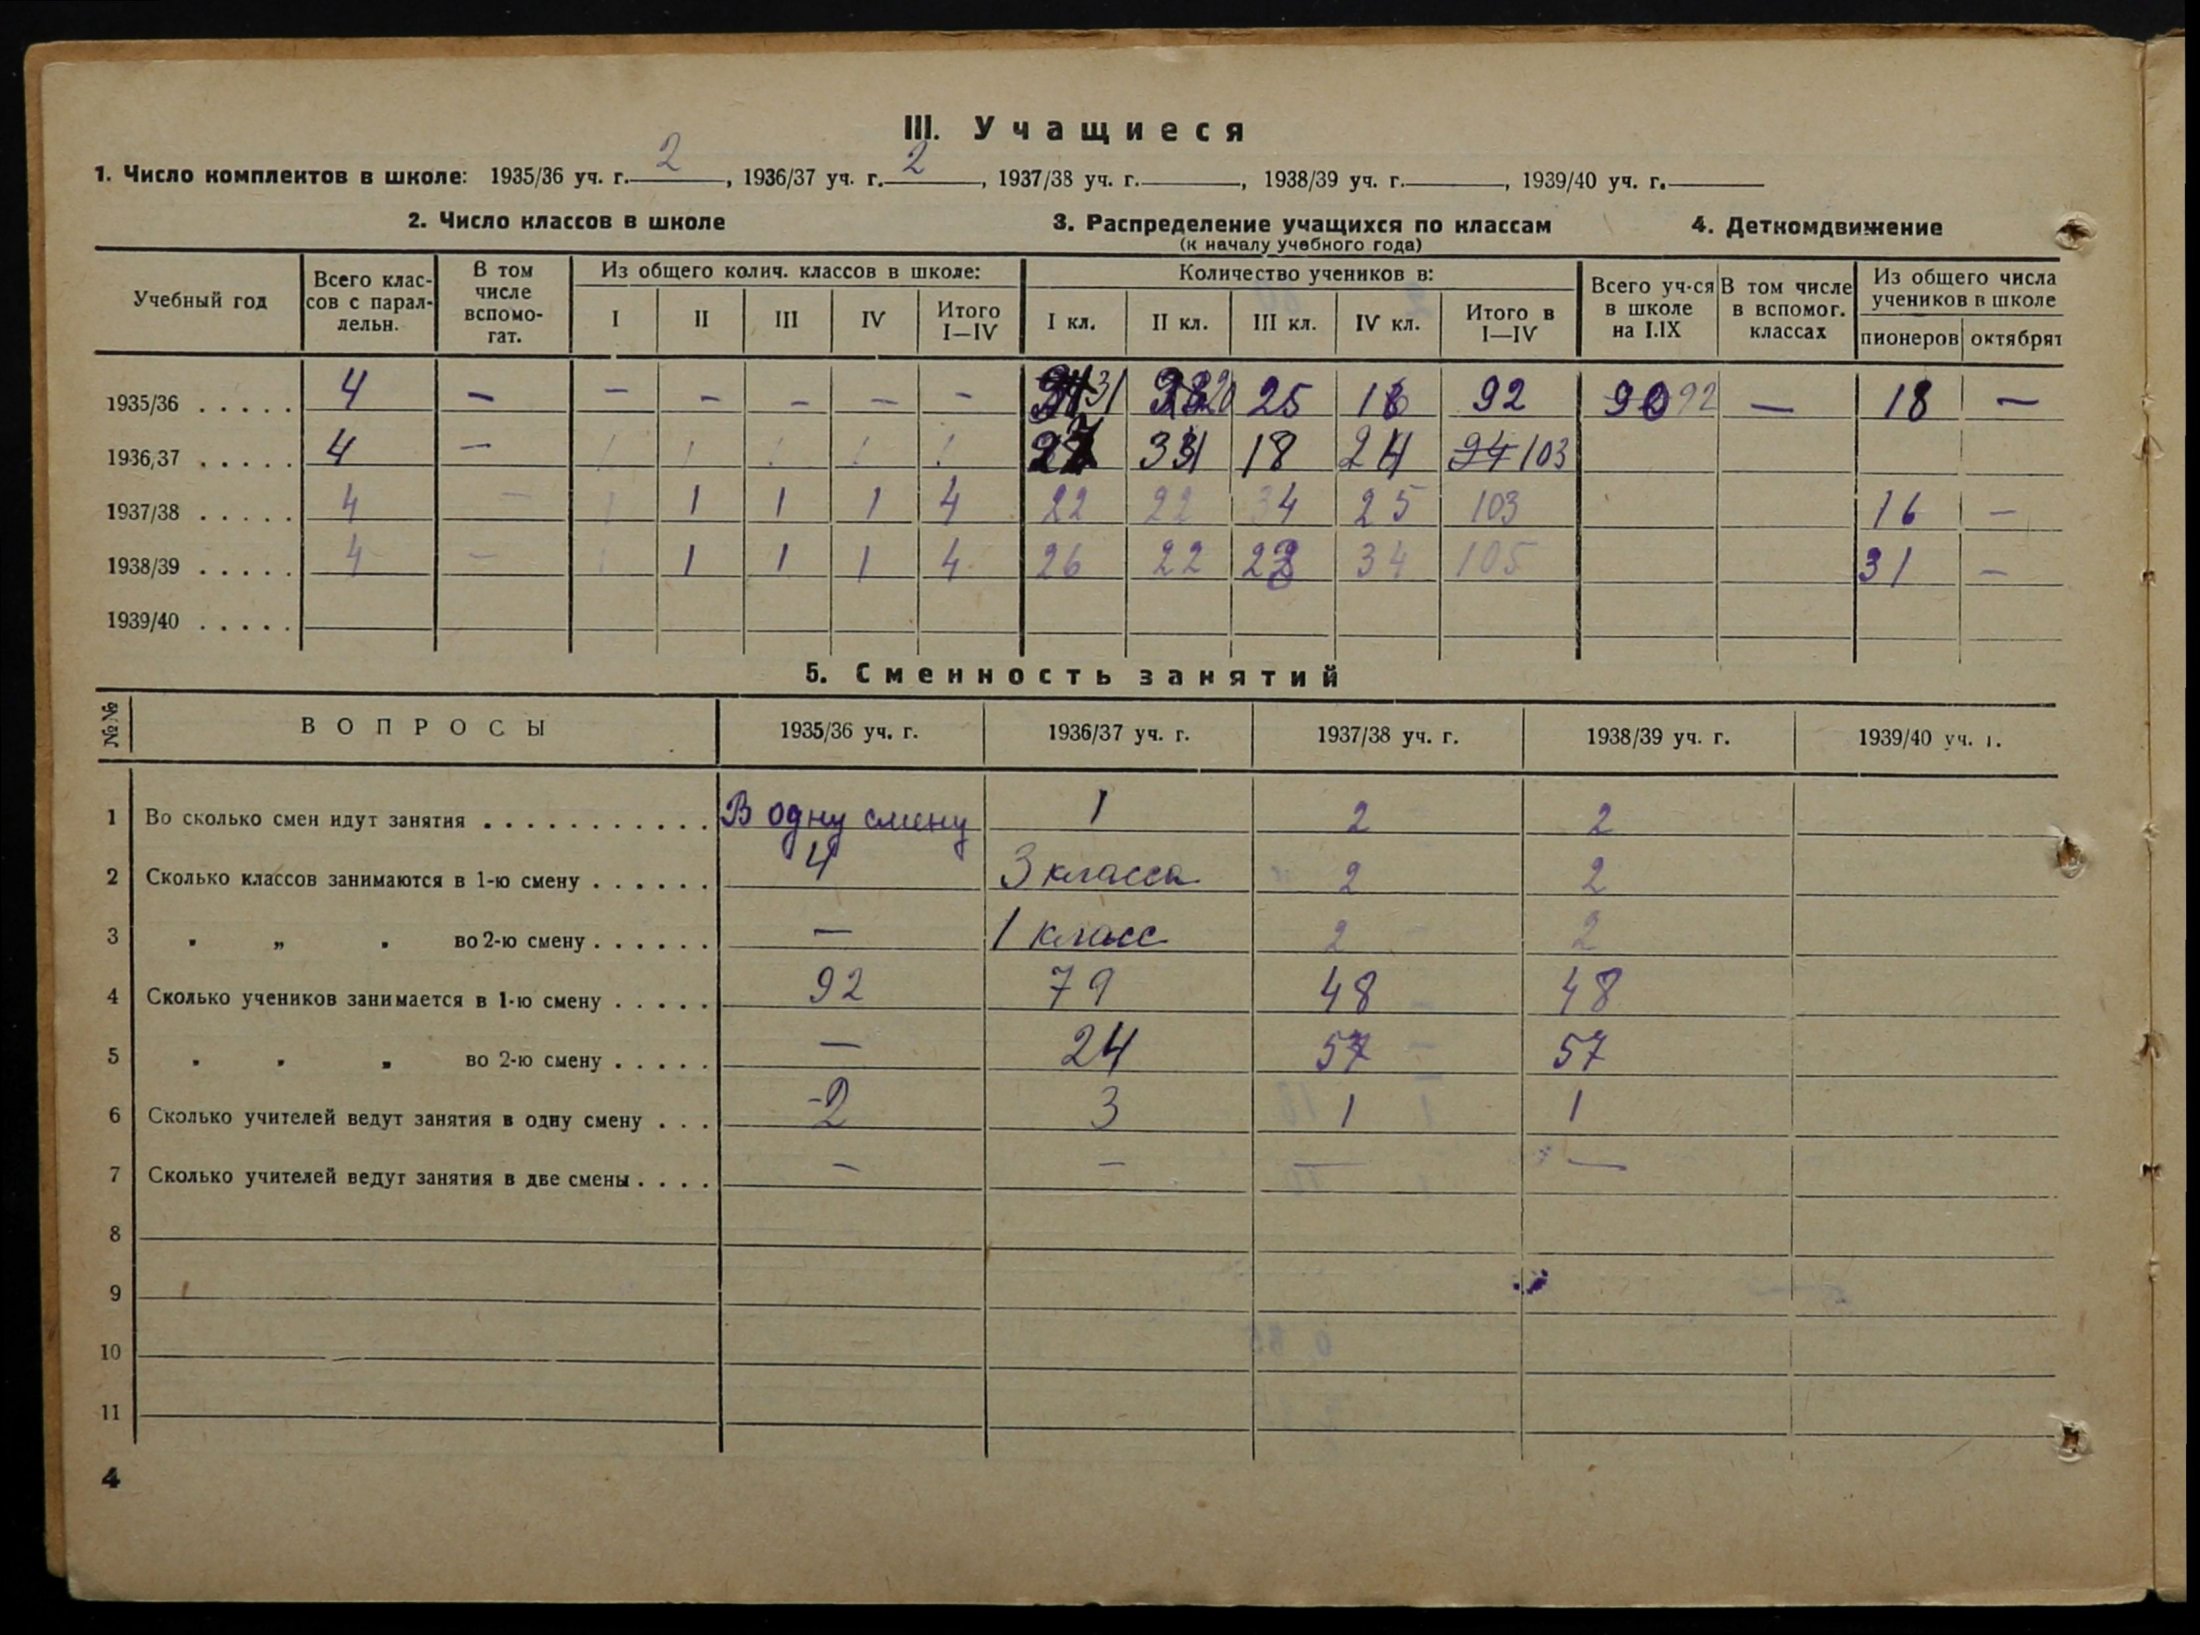 III. Учащиеся
1. Число комплектов в школе: 1935/36 уч. г. 2, 1936/37 уч. г. 2, 1937/38 уч. г. , 1938/39 уч. г. , 1939/40 уч. г.
2. Число классов в школе 3. Распределение учащихся по классам 4. Деткомдвижение
(к началу учебного года)
Учебный год
Всего клас-
сов с парал-
лельн.
В том
числе
вспомо-
гат.
Из общего колич. классов в школе:
I II III IV Итого
I—IV
Количество учеников в:
I кл. II кл. III кл. IV кл. Итого в
I—IV
Всего уч-ся
в школе
на I.IX
В том числе
в вспомог.
классах
Из общего числа
учеников в школе
пионеров октябрят
1935/36 . . . . . 4 — — — — — — 31 20 25 16 92 92 — 18 —
1936/37 . . . . . 4 — 1 1 1 1 ! 18 24 94 103
1937/38 . . . . . 4 — 1 1 1 1 4 22 22 34 25 103 16 —
1938/39 . . . . . 4 — 1 1 1 1 4 26 22 23 34 105 31 —
1939/40 . . . . .
5. Сменность занятий
№№ ВОПРОСЫ 1935/36 уч. г. 1936/37 уч. г. 1937/38 уч. г. 1938/39 уч. г. 1939/40 уч. г.
1 Во сколько смен идут занятия . . . . . . . . . . . В одну смену 1 2 2
2 Сколько классов занимаются в 1-ю смену . . . . . . 4 3 класса 2 2
3 " „ " во 2-ю смену . . . . . . — 1 класс 2 2
4 Сколько учеников занимается в 1-ю смену . . . . . 92 79 48 48
5 " " " во 2-ю смену . . . . . — 24 57 57
6 Сколько учителей ведут занятия в одну смену . . . -2 3 1 1
7 Сколько учителей ведут занятия в две смены . . . . — — — —
8
9
10
11
4